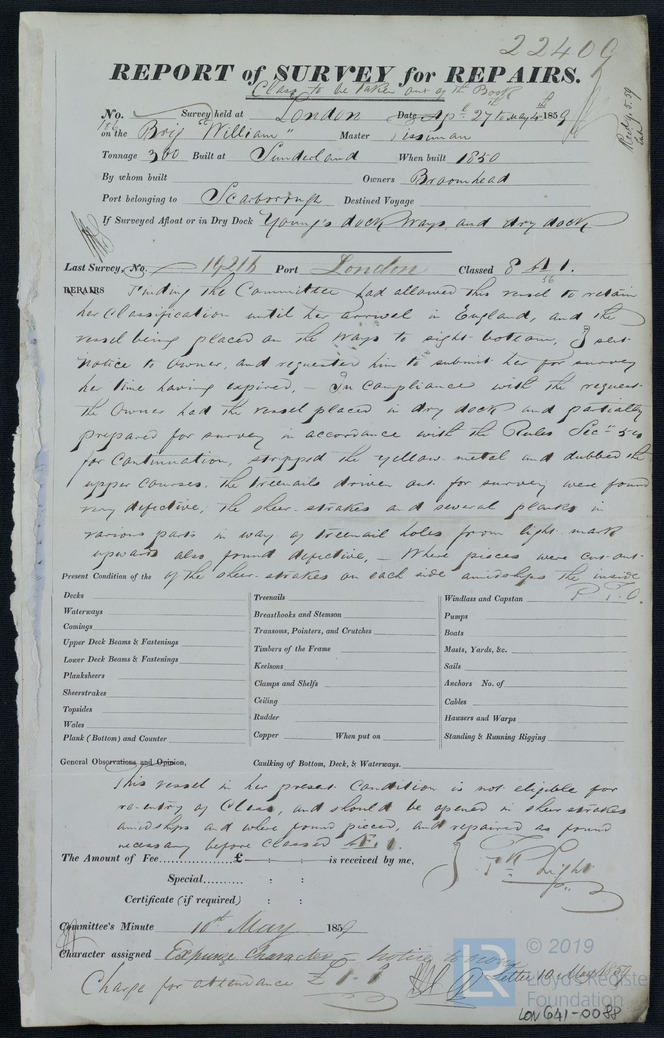 22409
REPORT of SURVEY for REPAIRS.
Class to be taken out of the Book
No. Survey held at London Date Apl 27th to May 4th 1859
on the Brig "William" Master
Recd 9.5.59
Tonnage 300 Built at Sunderland When built 1850
By whom built Owners Broomhead
Port belonging to Scarborough Destined Voyage
If Surveyed Afloat or in Dry Dock Young's dock ways and dry dock
Last Survey, No. 19216 Port London Classed 8 A 1.
56
REPAIRS Finding the Committee had allowed this vessel to retain
her Classification until her arrival in England, and the
vessel being placed on the ways to sight bottom, I sent
notice to Owner, and requested him to submit her for survey
her time having expired, — In compliance with the request
the Owner had the vessel placed in dry dock and partially
prepared for survey in accordance with the Rules Secn 50
for Continuation, stripped the yellow metal and dubbed the
upper courses. the treenails driven out for survey were found
very defective, the sheer strakes and several planks in
various parts in way of treenail holes from light mark
upwards also found defective, — Where pieces were cut out
Present Condition of the of the sheer-strakes on each side amidships the inside
P.T.O.
Decks
Waterways
Comings
Upper Deck Beams & Fastenings
Lower Deck Beams & Fastenings
Planksheers
Sheerstrakes
Topsides
Wales
Plank (Bottom) and Counter
Treenails
Breasthooks and Stemson
Transoms, Pointers, and Crutches
Timbers of the Frame
Keelsons
Clamps and Shelfs
Ceiling
Rudder
Copper When put on
Windlass and Capstan
Pumps
Boats
Masts, Yards, &c.
Sails
Anchors No. of
Cables
Hawsers and Warps
Standing & Running Rigging
General Observations and Opinion, Caulking of Bottom, Deck, & Waterways.
This vessel in her present Condition is not eligible for
re-entry of Class, and should be opened in sheer strakes
amidships and where found pieced, and repaired as found
necessary before Classed Æ 1.
The Amount of Fee £ : : is received by me,
Light
Special : :
Certificate (if required) : :
Committee's Minute 10th May 1859
Character assigned Expunge Character — notice to
letter 10 May 1859
Charge for attendance £1-1
LR
© 2019
Lloyd's Register
Foundation
LON641-0088